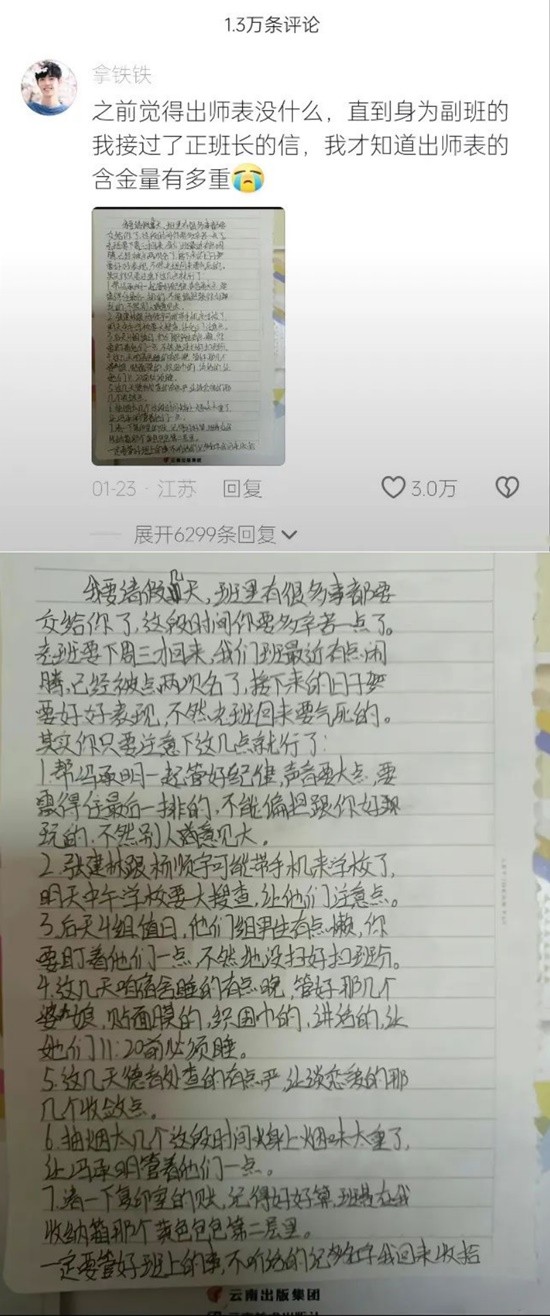 1.3万条评论
拿铁铁
之前觉得出师表没什么，直到身为副班的
我接过了正班长的信，我才知道出师表的
含金量有多重😭
01-23 · 江苏 回复
3.0万
展开6299条回复
我要请假几天，班里有很多事都要
交给你了，这段时间你要多辛苦一点了。
老班要下周三才回来，我们班最近有点闹
腾，已经被点两次名了，接下来的日子
要好好表现，不然老班回来要气死的。
其实你只要注意下这几点就行了：
1.帮冯承明一起管好纪律，声音要大点，要
震得住最后一排的，不能偏袒跟你好
玩的，不然别人意见大。
2.张建林跟杨顺宇可能带手机来学校了，
明天中午学校要大搜查，让他们注意点。
3.后天4组值日，他们组男生有点懒，你
要盯着他们一点，不然地没扫好扣班分。
4.这几天咱宿舍睡的有点晚，管好那几个
婆娘，贴面膜的，织围巾的，讲话的，让
她们11:20前必须睡。
5.这几天德育处查的有点严，让谈恋爱的那
几个收敛点。
6.抽烟太几个这段时间身上烟味太重了，
让冯承明管着他们一点。
7.看一下复印室的账，记得好好算，班费在我
收纳箱那个黄色包包第二层里。
一定要管好班上的事，不听话的记名字我回来收拾
云南出版集团